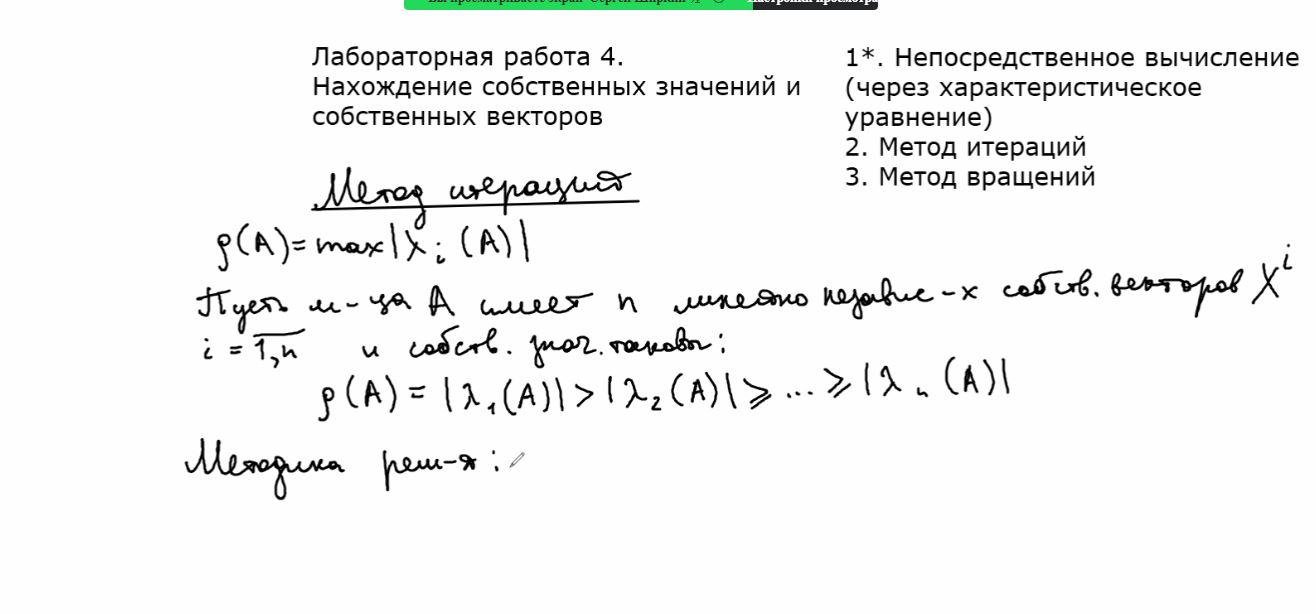 Вы просматриваете экран Сергей Ширкин
Настройки просмотра
Лабораторная работа 4.
Нахождение собственных значений и
собственных векторов
1*. Непосредственное вычисление
(через характеристическое
уравнение)
2. Метод итераций
3. Метод вращений
Метод итераций
ρ(A) = max|λᵢ(A)|
Пусть м-ца A имеет n линейно независ-х собств. векторов Xⁱ
i = 1,n и собств. знач. таковы:
ρ(A) = |λ₁(A)| > |λ₂(A)| ⩾ ... ⩾ |λₙ(A)|
Методика реш-я: